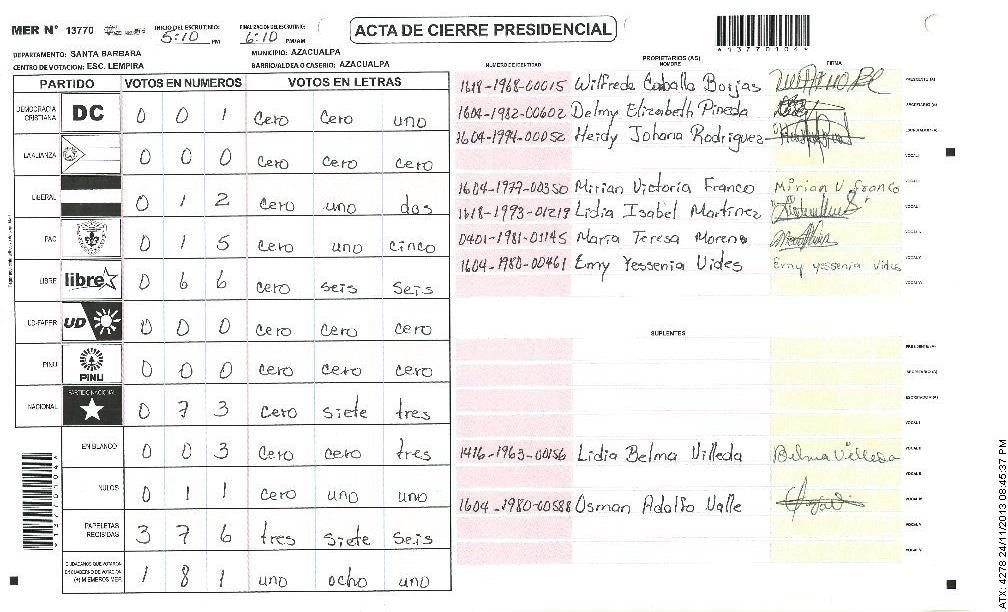 MER N° 13770
INICIO DEL ESCRUTINIO: 5:10 PM
FINALIZACION DEL ESCRUTINIO: 6:10 PM/AM
ACTA DE CIERRE PRESIDENCIAL
*13770104*
DEPARTAMENTO: SANTA BARBARA
MUNICIPIO: AZACUALPA
CENTRO DE VOTACION: ESC. LEMPIRA
BARRIO/ALDEA O CASERIO: AZACUALPA
PARTIDO VOTOS EN NUMEROS VOTOS EN LETRAS
DEMOCRACIA CRISTIANA DC 0 0 1 cero cero uno
LA ALIANZA 0 0 0 cero cero cero
LIBERAL 0 1 2 cero uno dos
PAC 0 1 5 cero uno cinco
LIBRE libre 0 6 6 cero seis seis
UD-FAPER UD 0 0 0 cero cero cero
PINU PINU 0 0 0 cero cero cero
NACIONAL PARTIDO NACIONAL 0 7 3 cero siete tres
EN BLANCO 0 0 3 cero cero tres
NULOS 0 1 1 cero uno uno
PAPELETAS RECIBIDAS 3 7 6 tres siete seis
CIUDADANOS QUE VOTARON EN CUADERNO DE VOTACION (+) MIEMBROS MER 1 8 1 uno ocho uno
*13770104*
PROPIETARIOS (AS)
NUMERO DE IDENTIDAD NOMBRE FIRMA
1618-1968-00015 Wilfredo Caballo Borjas PRESIDENTE (A)
1604-1982-00602 Delmy Elizabeth Pineda SECRETARIO (A)
1604-1994-00052 Heidy Johana Rodriguez ESCRUTADOR (A)
VOCAL I
1604-1977-00350 Mirian Victoria Franco Mirian V. franco
1618-1993-01219 Lidia Isabel Martinez
0401-1981-01145 Maria Teresa Moreno
1604-1980-00461 Emy Yessenia Vides Emy yessenia vides
SUPLENTES
PRESIDENTE (A)
SECRETARIO (A)
ESCRUTADOR (A)
VOCAL I
1416-1963-00156 Lidia Belma Villeda Belma Villeda VOCAL II
VOCAL III
1604-1980-00588 Osman Adolfo Valle VOCAL IV
VOCAL V
VOCAL VI
ATX: 4278 24/11/2013 08:45:37 PM